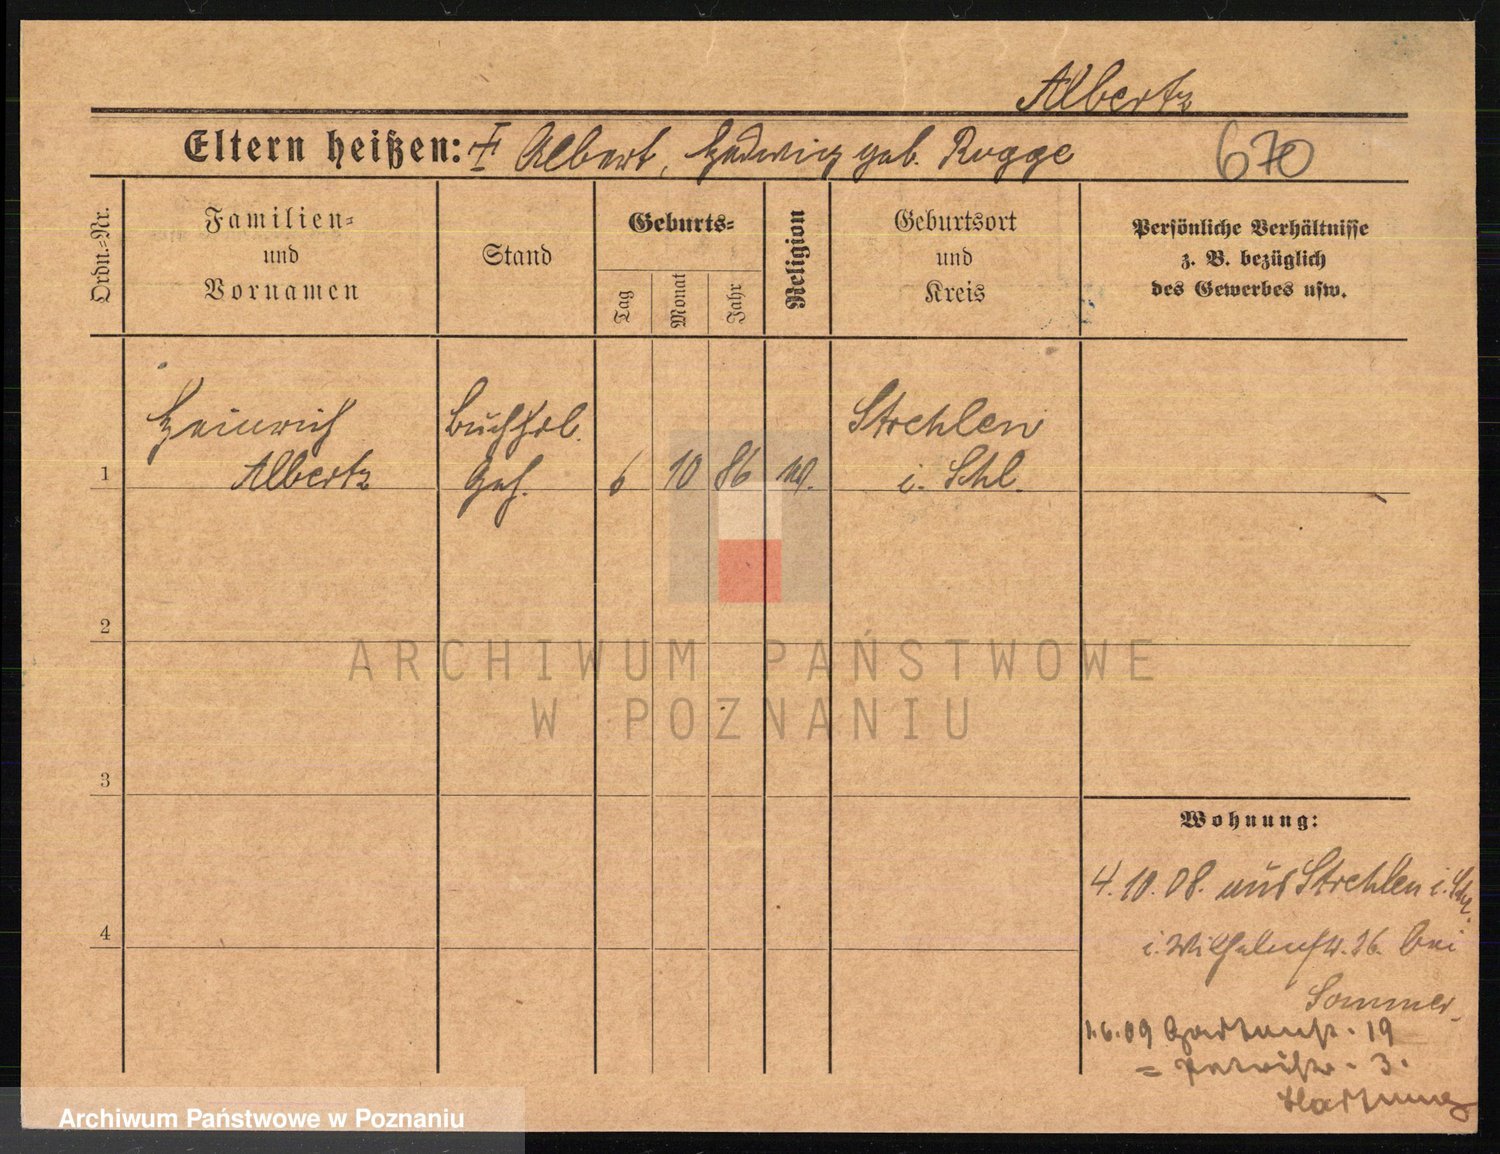 Albertz
Eltern heißen: Albert, Hedwig geb. Rogge
670
Ordn.=Nr.
Familien=
und
Vornamen
Stand
Geburts=
Tag
Monat
Jahr
Religion
Geburtsort
und
Kreis
Persönliche Verhältnisse
z. B. bezüglich
des Gewerbes usw.
Heinrich
Albertz
Buchhdl.
Geh.
1
6
10
86
Strehlen
i. Schl.
2
3
4
ARCHIWUM PAŃSTWOWE
W POZNANIU
Wohnung:
4.10.08. aus Strehlen i. Schl.
i. Wilhelmstr. 26. bei
Sommer.
1.6.09 Gartenstr. 19
= 3.
Hartung
Archiwum Państwowe w Poznaniu